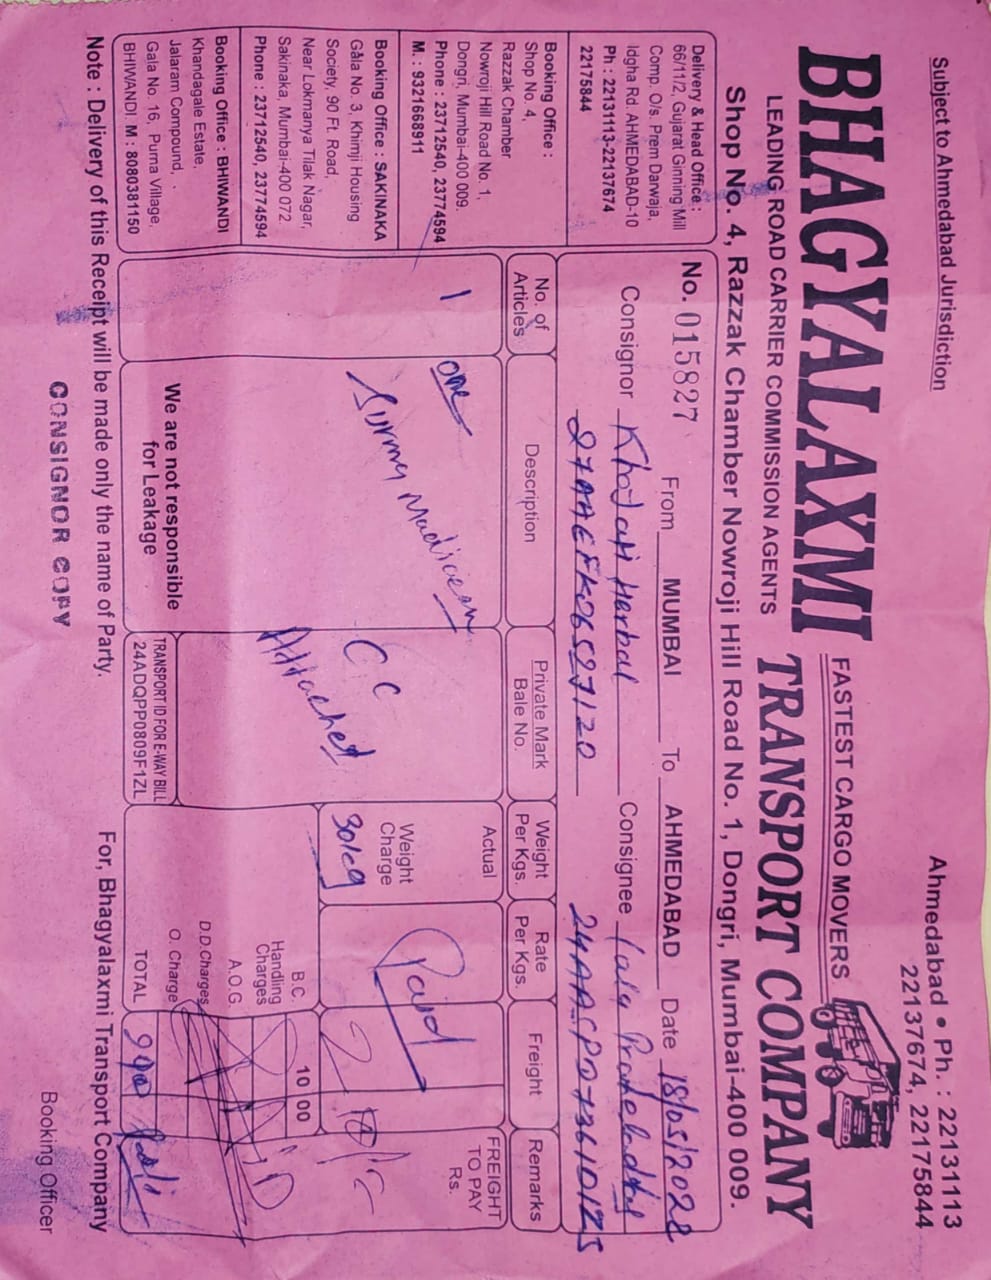 Subject to Ahmedabad Jurisdiction
Ahmedabad • Ph. : 22131113
22137674, 22175844
BHAGYALAXMI TRANSPORT COMPANY
FASTEST CARGO MOVERS
LEADING ROAD CARRIER COMMISSION AGENTS
Shop No. 4, Razzak Chamber Nowroji Hill Road No. 1, Dongri, Mumbai-400 009.
Delivery & Head Office :
66/11/2, Gujarat Ginning Mill
Comp. O/s. Prem Darwaja,
Idgha Rd. AHMEDABAD-10
Ph : 22131113-22137674
22175844
Booking Office :
Shop No. 4,
Razzak Chamber
Nowroji Hill Road No. 1,
Dongri, Mumbai-400 009.
Phone : 23712540, 23774594
M. : 9321668911
Booking Office : SAKINAKA
Gala No. 3, Khimji Housing
Society, 90 Ft. Road,
Near Lokmanya Tilak Nagar,
Sakinaka, Mumbai-400 072.
Phone : 23712540, 23774594
Booking Office : BHIWANDI
Khandagale Estate,
Jalaram Compound,
Gala No. 16, Purna Village,
BHIWANDI. M : 8080381150
No. 015827 From MUMBAI To AHMEDABAD Date
Consignor Khojati Herbal Consignee
No. of Articles
Description
Private Mark Bale No.
Weight Per Kgs.
Rate Per Kgs.
Freight
Remarks
1
one
C C
Attached
Actual
Weight Charge
30kg
Paid
FREIGHT TO PAY Rs.
B.C. 10 00
Handling Charges
A.O.G.
D.D.Charges
O. Charge
TOTAL
We are not responsible for Leakage
TRANSPORT ID FOR E-WAY BILL
24ADQPP0809F1ZL
Note : Delivery of this Receipt will be made only the name of Party.
For, Bhagyalaxmi Transport Company
CONSIGNOR COPY
Booking Officer